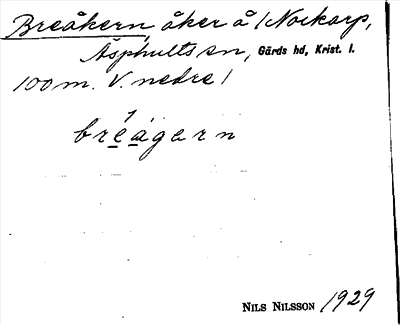 Breåkern, åker å /Nockarp,
Äsphults sn, Gärds hd, Krist. l.
100 m. V. nedre/
breagern
NILS NILSSON 1929